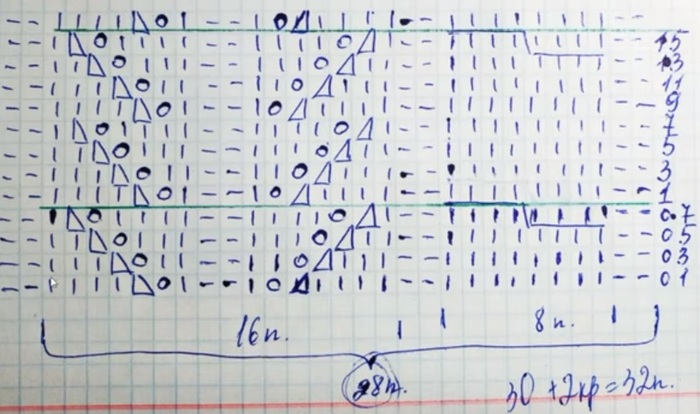 15
13
11
9
7
5
3
1
0.7
05
03
01
16п. 8п.
28п.
30 + 2кр = 32п.